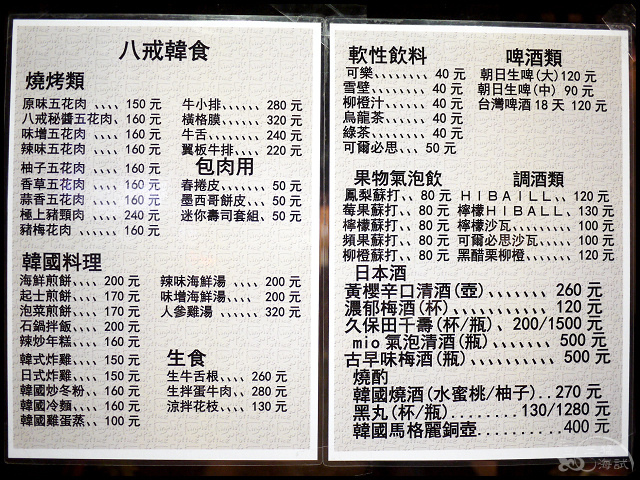 八戒韓食
燒烤類
原味五花肉 、、、、 150 元
八戒秘醬五花肉、 160 元
味增五花肉 、、、、 160 元
辣味五花肉 、、、、 160 元
柚子五花肉 、、、、 160 元
香草五花肉 、、、、 160 元
蒜香五花肉 、、、、 160 元
極上豬頸肉 、、、、 240 元
豬梅花肉 、、、、、、 160 元
牛小排、、、、、、 280 元
橫格膜、、、、、、 320 元
牛舌、、、、、、、 240 元
翼板牛排、、、、 220 元
包肉用
春捲皮、、、、、、 50 元
墨西哥餅皮、、、、 50 元
迷你壽司套組、、 50 元
韓國料理
海鮮煎餅、、、、 200 元
起士煎餅、、、、 170 元
泡菜煎餅、、、、 170 元
石鍋拌飯、、、、 200 元
辣炒年糕、、、、 160 元
韓式炸雞、、、、 150 元
日式炸雞、、、、 150 元
韓國炒冬粉、、 160 元
韓國冷麵、、、、 160 元
韓國雞蛋蒸、、 100 元
辣味海鮮湯 、、、、 200 元
味增海鮮湯、、、、 200 元
人參雞湯 、、、、、、 320 元
生食
生牛舌根、、、、 260 元
生拌蛋牛肉、、、 280 元
涼拌花枝、、、、 130 元
軟性飲料
可樂、、、、、、、、 40 元
雪壁、、、、、、、、 40 元
柳橙汁、、、、、、 40 元
烏龍茶、、、、、、 40 元
綠茶、、、、、、、、 40 元
可爾必思、、、 50 元
啤酒類
朝日生啤(大)120 元
朝日生啤(中) 90 元
台灣啤酒 18 天 120 元
果物氣泡飲
鳳梨蘇打、、 80 元
莓果蘇打、、 80 元
檸檬蘇打、、 80 元
蘋果蘇打、、 80 元
柳橙蘇打、、 80 元
調酒類
ＨＩＢＡＩＬＬ、、120 元
檸檬ＨＩＢＡＬＬ、130 元
檸檬沙瓦、、、、、、 100 元
可爾必思沙瓦、、、、 100 元
黑醋栗柳橙、、、、 120 元
日本酒
黃櫻辛口清酒(壺)、、、、、、、 260 元
濃郁梅酒(杯)、、、、、、、、、、、 120 元
久保田千壽(杯/瓶)、 200/1500 元
mio 氣泡清酒(瓶)、、、、、、、 500 元
古早味梅酒(瓶)、、、、、、、、、 500 元
燒酌
韓國燒酒(水蜜桃/柚子)..270 元
黑丸(杯/瓶)........130/1280 元
韓國馬格麗銅壺..........400 元
海試